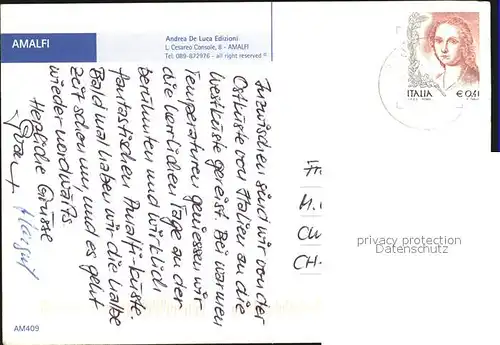 AMALFI
Andrea De Luca Edizioni
L. Cesareo Console, 8 - AMALFI
Tel. 089-872976 - all right reserved ©
ITALIA
€ 0,41
Inzwischen sind wir von der
Ostküste von Italien an die
Westküste gereist. Bei warmen
Temperaturen geniessen wir
die herrlichen Tage an der
berühmten und wirklich
fantastischen Amalfi-küste.
Bald mal haben wir die halbe
Zeit schon um, und es geht
wieder nordwärts.
Herzliche Grüsse
Margrit
M.
CH-
privacy protection
Datenschutz
AM409